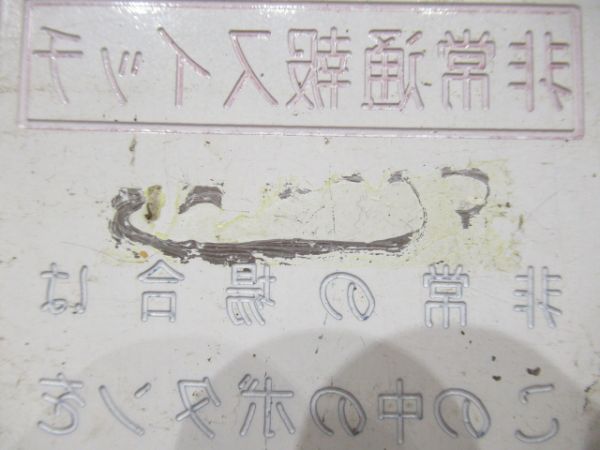 非常通報スイッチ
非常の場合は
この中のボタンを